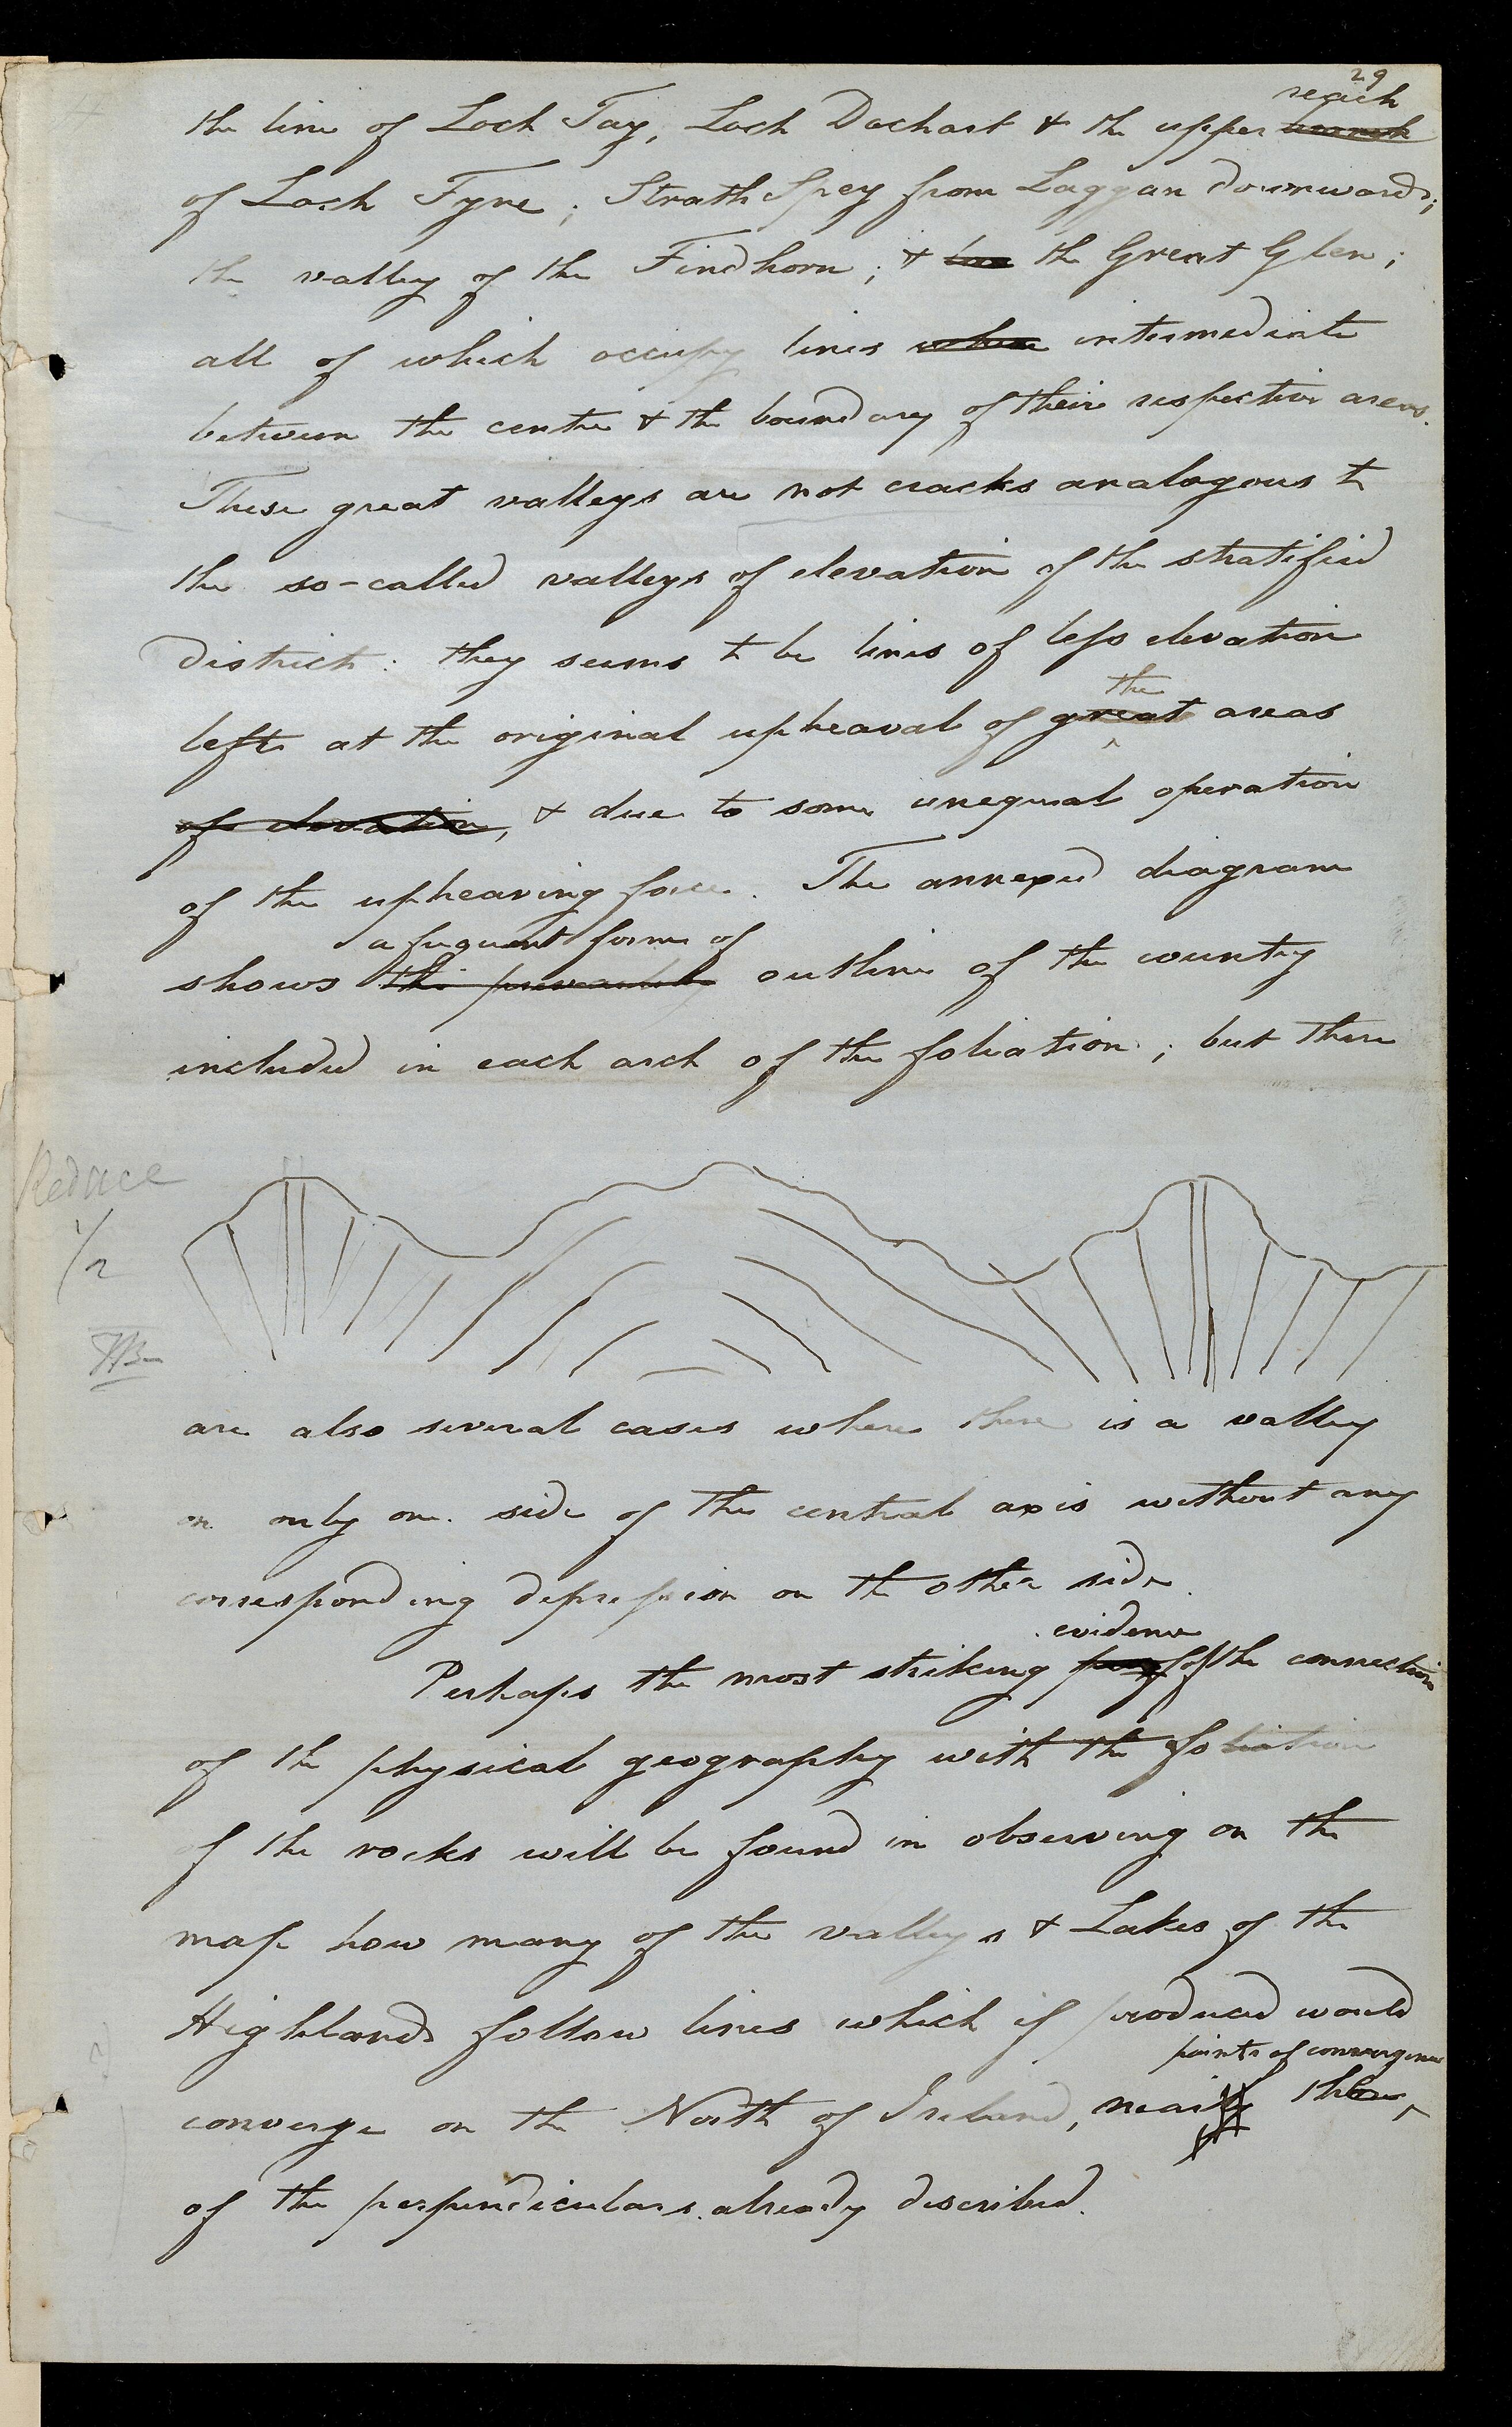 29
reach
the line of Loch Tay, Loch Dochart & the upper
of Loch Fyne; Strath Spey from Laggan downwards;
the valley of the Findhorn; & the Great Glen;
all of which occupy lines intermediate
between the centre & the boundary of their respective areas.
These great valleys are not cracks analogous to
the so-called valleys of elevation of the stratified
district: they seems to be lines of less elevation
the
left at the original upheaval of great areas
of elevation, & due to some unequal operation
of the upheaving force. The annexed diagram
a frequent form of
shows the outline of the country
included in each arch of the foliation; but there
Reduce
1/2
are also several cases where there is a valley
on only one side of the central axis without any
corresponding depression on the other side.
evidence
Perhaps the most striking of the connection
of the physical geography with the foliation
of the rocks will be found in observing on the
map how many of the valleys & Lakes of the
Highlands follow lines which if produced would
points of convergence
converge on the North of Ireland, near the
of the perpendiculars already described.